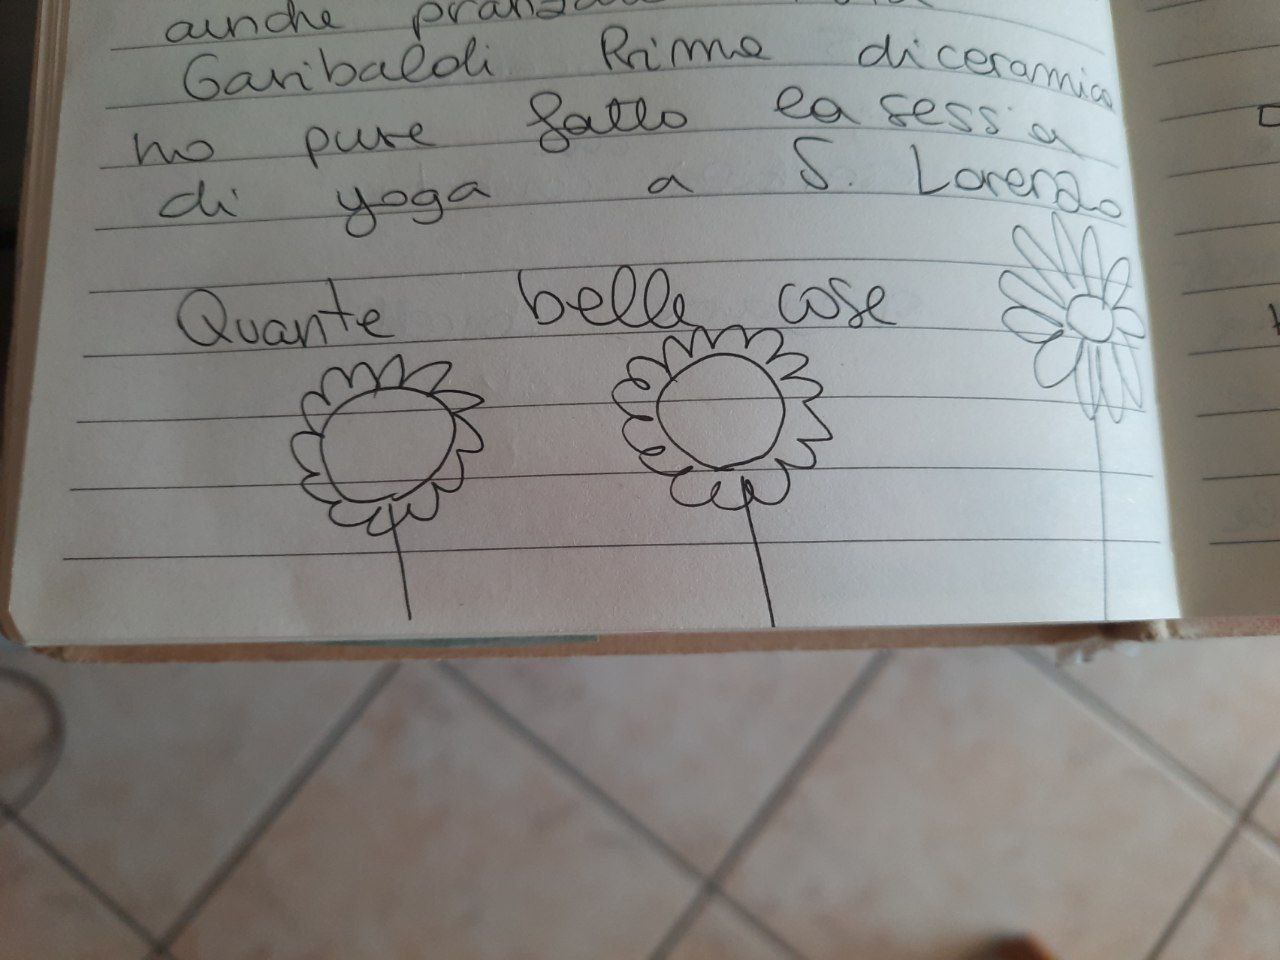 aunche
Garibaldi Prima di ceramica
ho pure fatto ea sessia
di yoga a S. Lorenzo
Quante belle cose